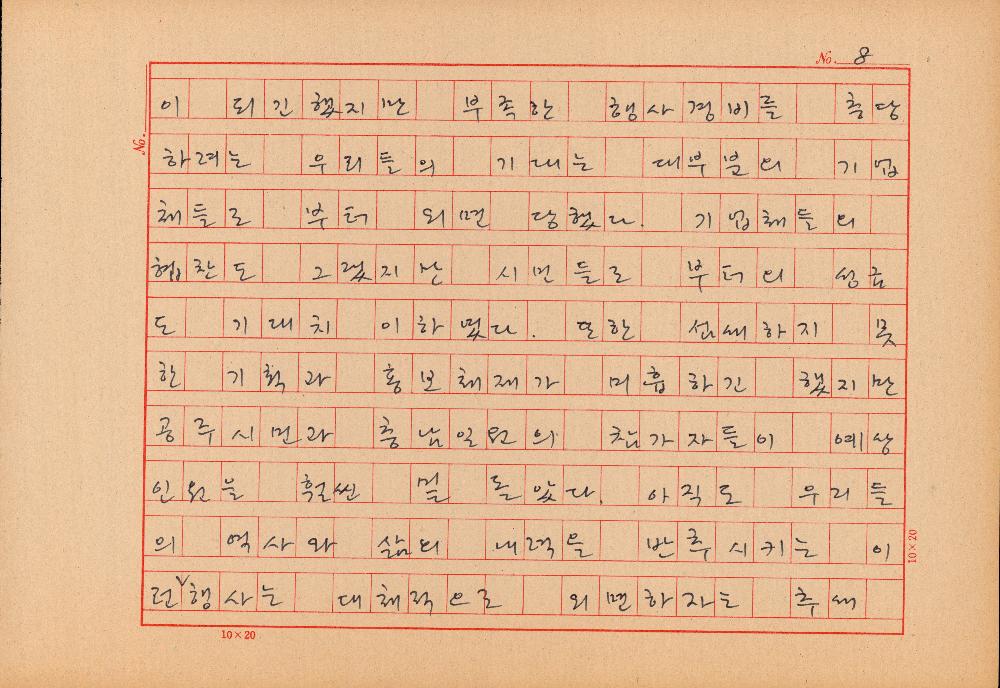 No. 8
이 되긴 했지만 부족한 행사경비를 충당
하려는 우리들의 기대는 대부분의 기업
체들로 부터 외면 당했다. 기업체들의
협찬도 그랬지만 시민들로 부터의 성금
도 기대치 이하였다. 또한 섬세하지 못
한 기획과 홍보체재가 미흡하긴 했지만
공주시민과 충남일원의 참가자들이 예상
인원을 훨씬 밑 돌았다. 아직도 우리들
의 역사와 삶의 내력을 반추시키는 이
런∨행사는 대체적으로 외면하자는 추세
No.
10×20
10×20